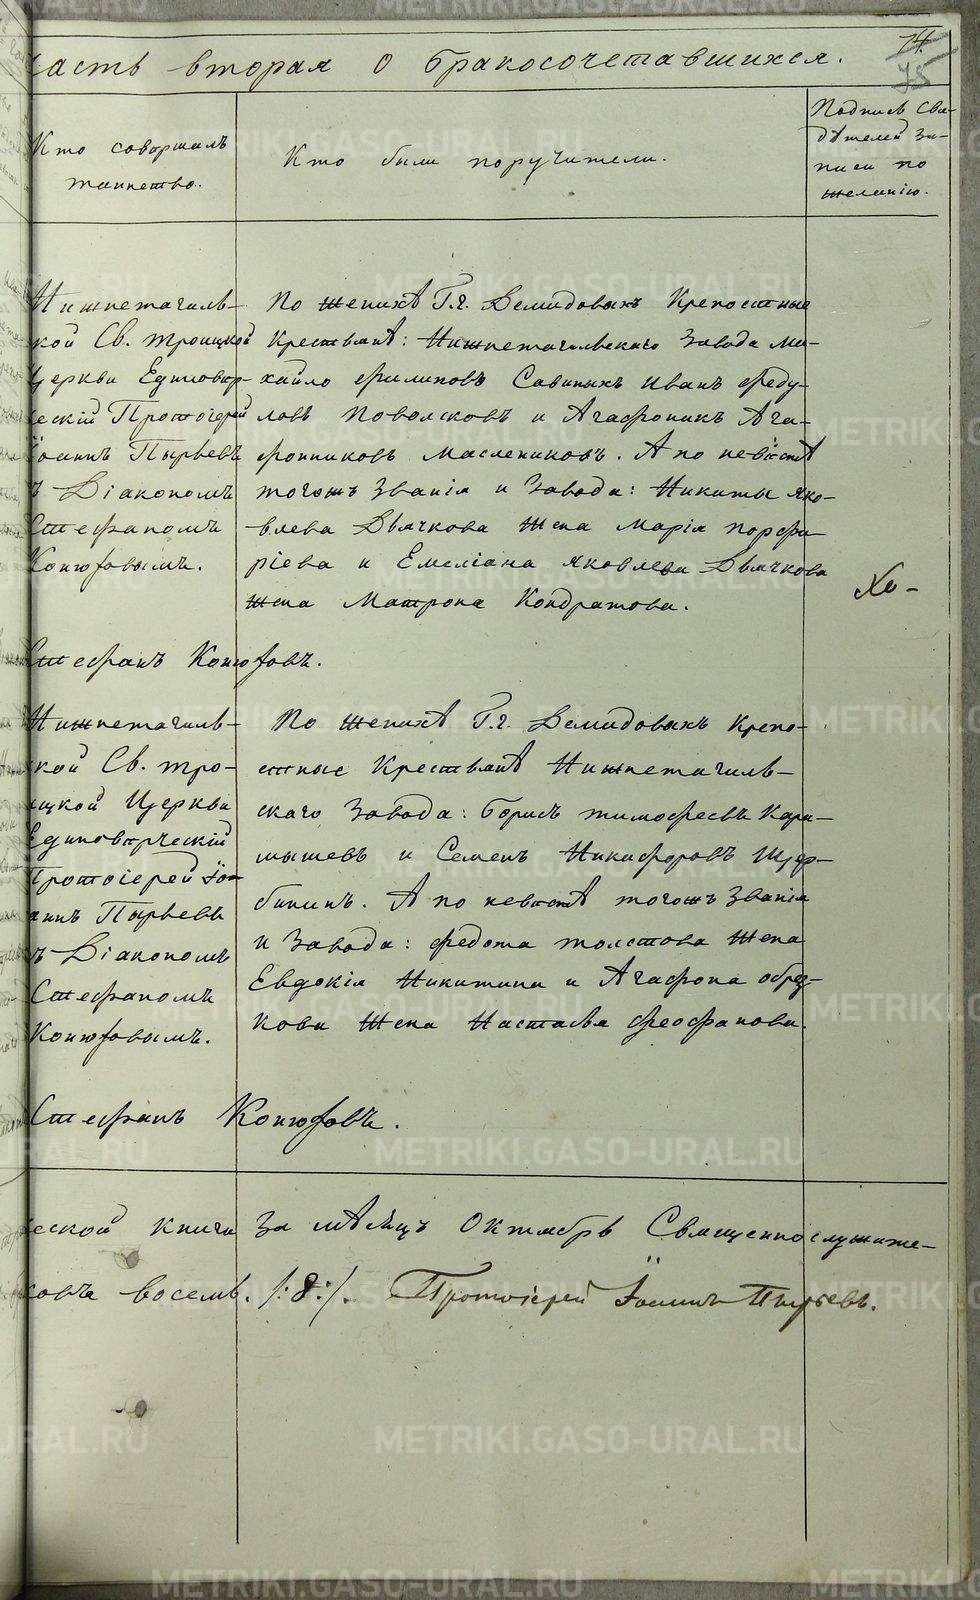 74.
75
часть вторая о бракосочетавшихся.
Кто совершалъ
таинство.
Кто были поручители.
Подпись Сви-
дѣтелей За-
писи по
желанію.
Нижнетагиль-
кой Св. Троицкой
Церкви Единовер-
ескій Протоіерей
Іоаннъ Пырьевъ
ъ Діакономъ
Стефаномъ
Конюховымъ.
По женихѣ Г.г. Демидовыхъ Крепостные
Крестьянѣ: Нижнетагильскаго Завода Ми-
хайло Филиповъ Савиныхъ Иванъ Феду-
ловъ Поволсковъ и Агафоникъ Ага-
фониковъ Маслениковъ. А по невѣстѣ
тогожъ Званія и Завода: Никиты Яко-
влева Дьячкова Жена Марія Порфи-
ріева и Емеліана Яковлева Дьячкова
Жена Матрона Кондратова.
Стефанъ Конюховъ.
Нижнетагиль-
кой Св. Тро-
ицкой Церкви
Единоверческій
Протоіерей Іоа-
ннъ Пырьевъ
ъ Діакономъ
Стефаномъ
Конюховымъ.
По женихѣ Г.г. Демидовыхъ Крепо-
стные Крестьянѣ Нижнетагиль-
скаго Завода: Борисъ Тимофеевъ Кара-
мышевъ и Семенъ Никифоровъ Щер-
бининъ. А по невѣстѣ тогожъ Званія
и Завода: Федота Толстова Жена
Евдокія Никитина и Агафона Обрез-
кова Жена Настасья Феофанова.
Стефанъ Конюховъ.
еской книги за мѣсяцъ Октябрь Священнослужите-
ковъ восемь. /:8:/. Протоіерей Іоаннъ Пырьевъ.
METRIKI.GASO-URAL.RU